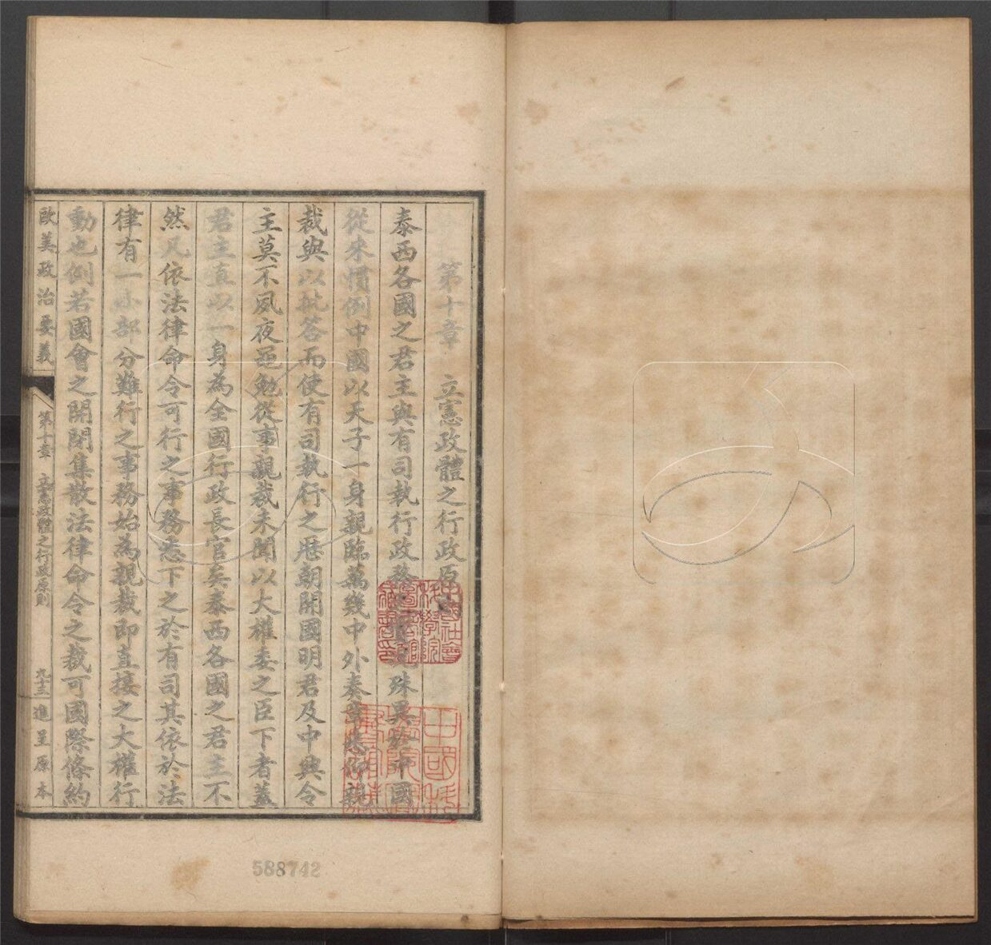 第十章 立憲政體之行政原
泰西各國之君主與有司執行政務殊異於中國
從來慣例中國以天子一身親臨萬幾中外奏章悉仰親
裁與以批答而使有司執行之歷朝開國明君及中興令
主莫不夙夜黽勉從事親裁未聞以大權委之臣下者蓋
君主直以一身為全國行政長官矣泰西各國之君主不
然凡依法律命令可行之事務悉下之於有司其依於法
律有一小部分難行之事務始為親裁即直接之大權行
動也例若國會之開閉集散法律命令之裁可國際條約
歐美政治要義 第十章 立憲政體之行政原則 九十三 進呈原本
588742